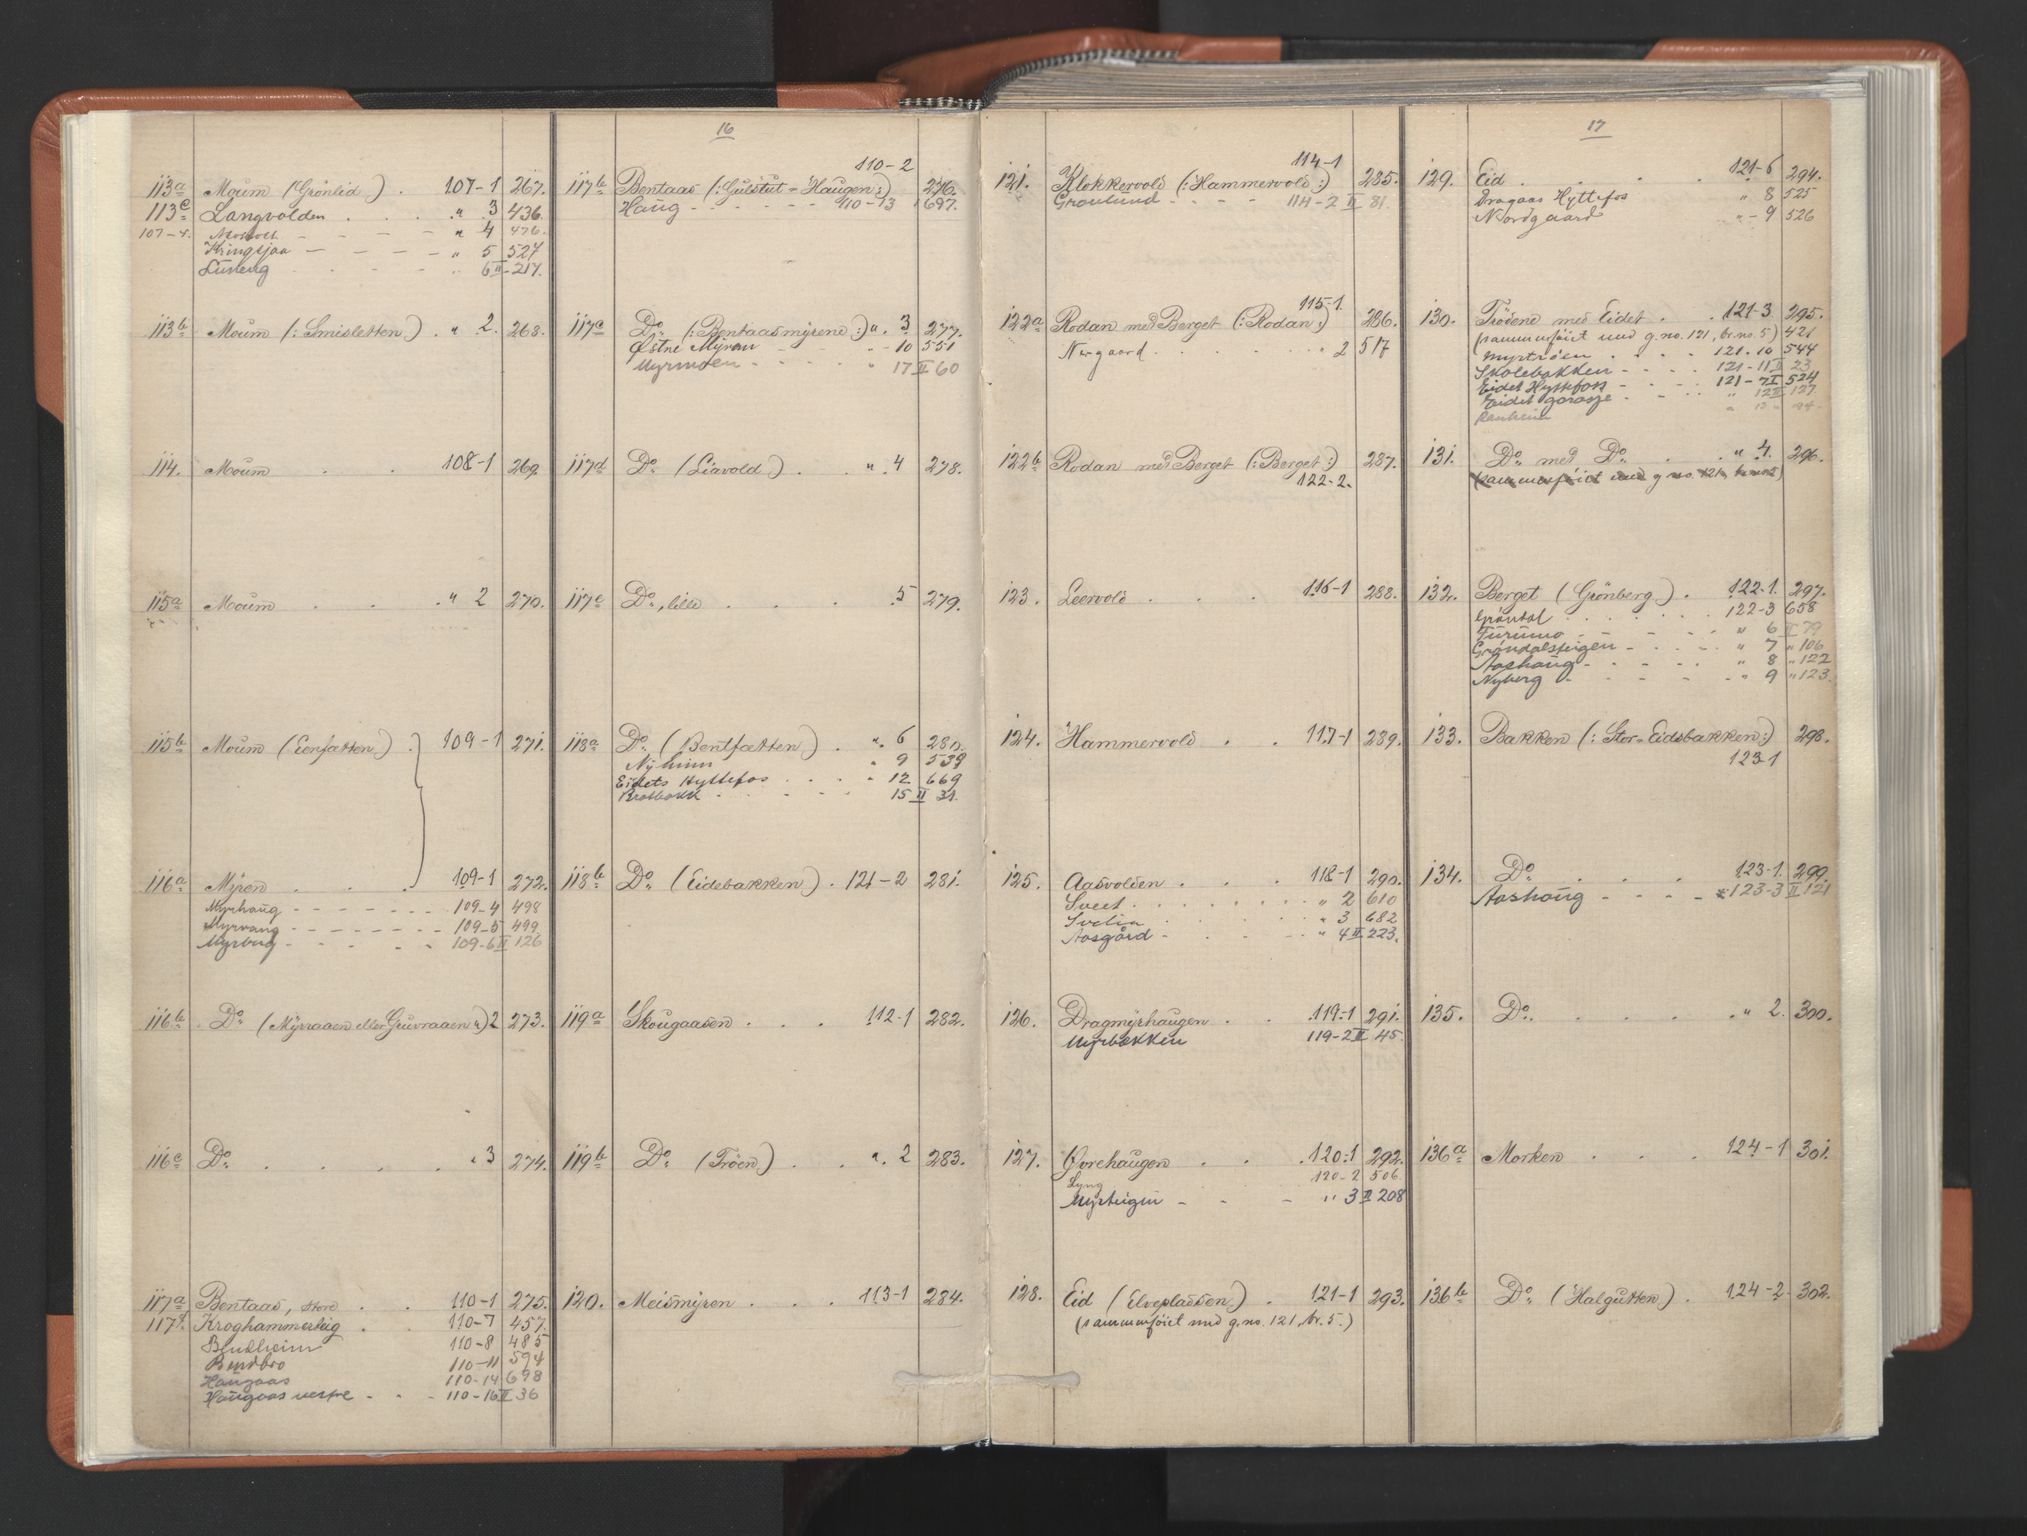 16
113a Moum (Grönlid) . 107-1 267.
113c Langvolden . . . . " 3 436.
107-4. - - - - " 4 476.
Kringsjaa - - - - " 5 527
6 II - 217.
113b Moum (: Smisletten) . " 2. 268.
114. Moum . . 108-1 269.
115a Moum . . . " 2 270.
115b Moum (Eenfætten) . 109-1 271.
116a Myren . . . 109-1 272.
Myrhaug - - - - - - 109-4 498
Myrvang - - - - - - 109-5 499.
Myrberg - - - - 109-6 II 126
116b Do (Myrraaen eller Gruvraaen " ) 2 273.
116c Do . . . . " 3 274.
117a Bentaas, store . . 110-1 275.
117f Kroghammerteig . . 110-7 457.
110-8 485
Bendbro 110-11 594
Haugaas 110-14 698
Haugaas vestre - - - 110-16 II 36
110-2
117b Bentaas (: Gulstut = Haugen :) 276.
Haug - - - - - - 110-13 697.
117c Do (: Bentaasmyrene :) ". 3 277.
Østre Myran - - - 10 551
Myrmoen - - - " 17 II 60
117d Do (Liavold) . . ". 4 278.
117e Do, lille . . . . 5 279.
118a Do (Bentfætten) . ". 6 280.
Nyheim " 9 539
Eidets Hyttefos . . . " 12 669
15 II 31.
118b Do (Eidebakken) . 121-2 281.
119a Skougaasen . . . 112-1 282.
119b Do (Tröen) . . ". 2 283.
120. Meismyren . . . 113-1 284.
17
114-1
121. Klokkervold (: Hammervold :) 285.
Grønlund - - - - 114-2 II 81.
115-1
122a Rodan med Berget (: Rodan :) 286.
Norgaard . . . . . " 2 517
122b Rodan med Berget (: Berget :) 287.
122-2.
123. Leervold . . . 116-1 288.
124. Hammervold . . 117-1 289.
125. Aasvolden . . . 118-1 290.
Sveet . . . . . . " 2 610
Svelia . . . . . " 3 682
Aasgård - . . - - " 4 II 223.
126. Dragmyrhaugen . . 119-1 291.
Myrbakken 119-2 II 45.
127. Øvrehaugen . . . 120-1 292.
Lyng 120-2 506.
Myrteigen - - - " 3 II 208
128. Eid (Elveplassen) . 121-1 293.
(sammenføiet med g.no. 121, br. 5.)
129. Eid . . . . 121-6 294.
Dragaas Hyttefos " 8 525
Nordgaard " - 9 526
130. Tröene med Eidet . . 121-3 295.
(sammenføiet med g.no. 121, br.no. 5) 421
Myrtrøen . . . . 121-10 544
Skolebakken - - - - 121-11 II 23
Eidet Hyttefoss - - - - 121-7 I 524
Eidet garasje - - - - " 12 II 127
131. Do med Do . . " 4. 296.
(sammenføiet med g no. 121, br.no 5)
132. Berget (Grönberg) . 122-1. 297.
Grøntal . . . . . . 122-3 658
Furumo - - - - " 6 II 79
Grøndalsteigen - - - - " 7 " 106
Aashaug - - - - " 8 " 122
Nyberg - - - - " 9 " 123.
133. Bakken (: Stor = Eidsbakken :) 298.
123-1
134. Do . . . 123-1. 299.
Aashaug - - - - 123-3 II 121
135. Do . . . . . " 2. 300.
136a Morken . . . 124-1 301.
136b Do (Halgutten) . 124-2 302.